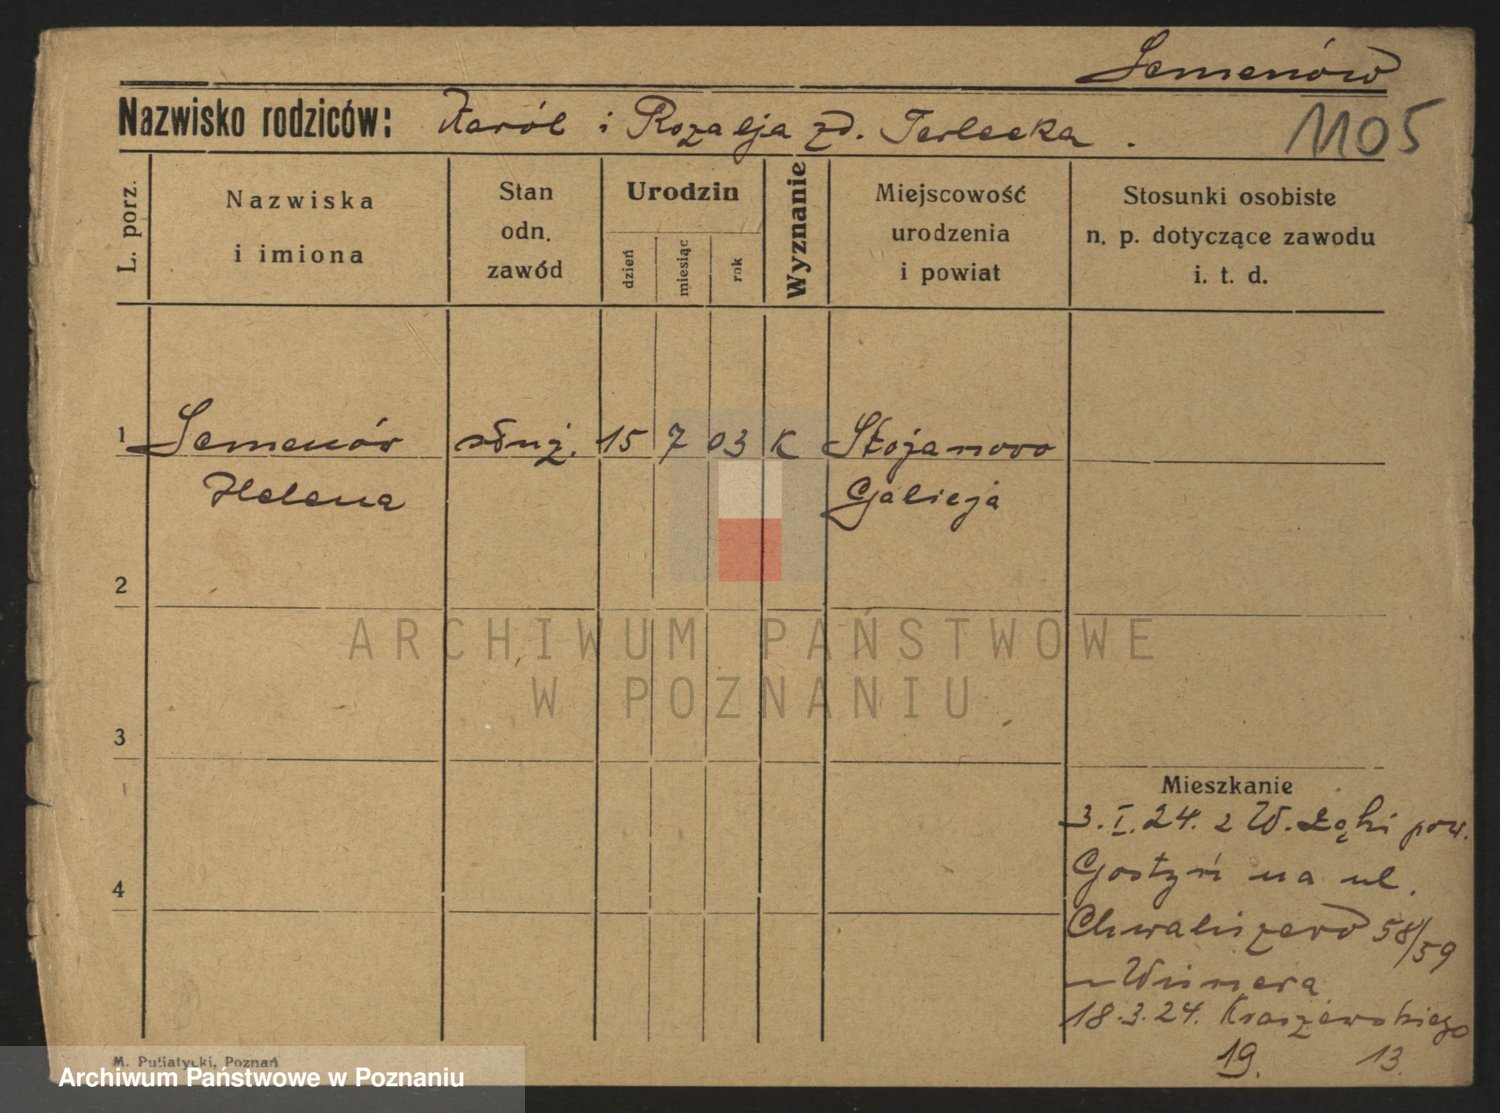 Semenów
Nazwisko rodziców: Karól i Rozalja zd. Terlecka.
1105
L. porz.
Nazwiska
i imiona
Stan
odn.
zawód
Urodzin
dzień
miesiąc
rok
Wyznanie
Miejscowość
urodzenia
i powiat
Stosunki osobiste
n. p. dotyczące zawodu
i. t. d.
1 Semenów służ. 15 7 03 K Stojanowo
Helena Galicja
2
ARCHIWUM PAŃSTWOWE
W POZNANIU
3
Mieszkanie
3.I.24. z W. Łęki pow.
4 Gostyń na ul.
Chwaliszewo 58/59
u Wisnera
18.3.24. Kraszewskiego
19. 13.
M. Putiatycki, Poznań
Archiwum Państwowe w Poznaniu